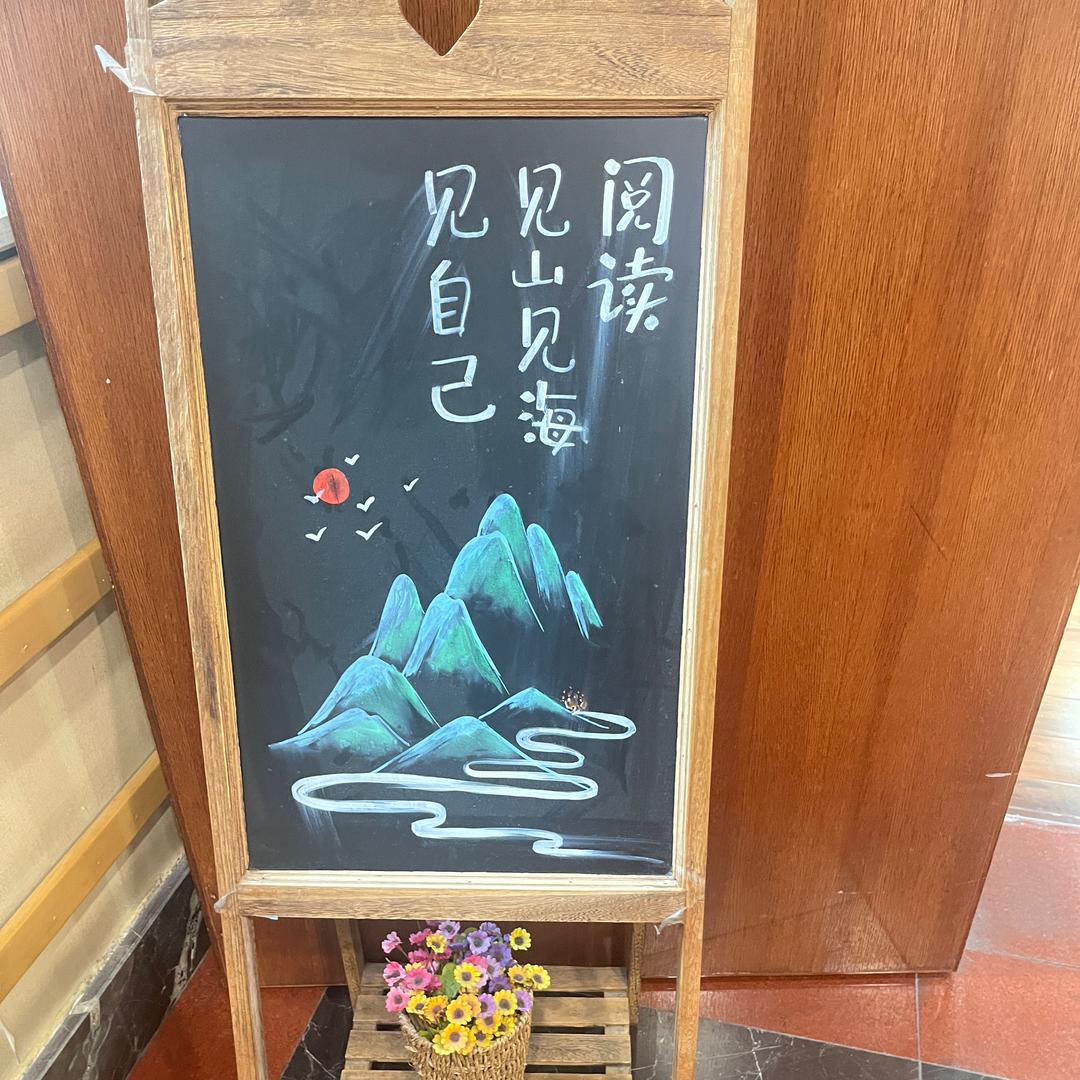 阅读
见山见海
见自己